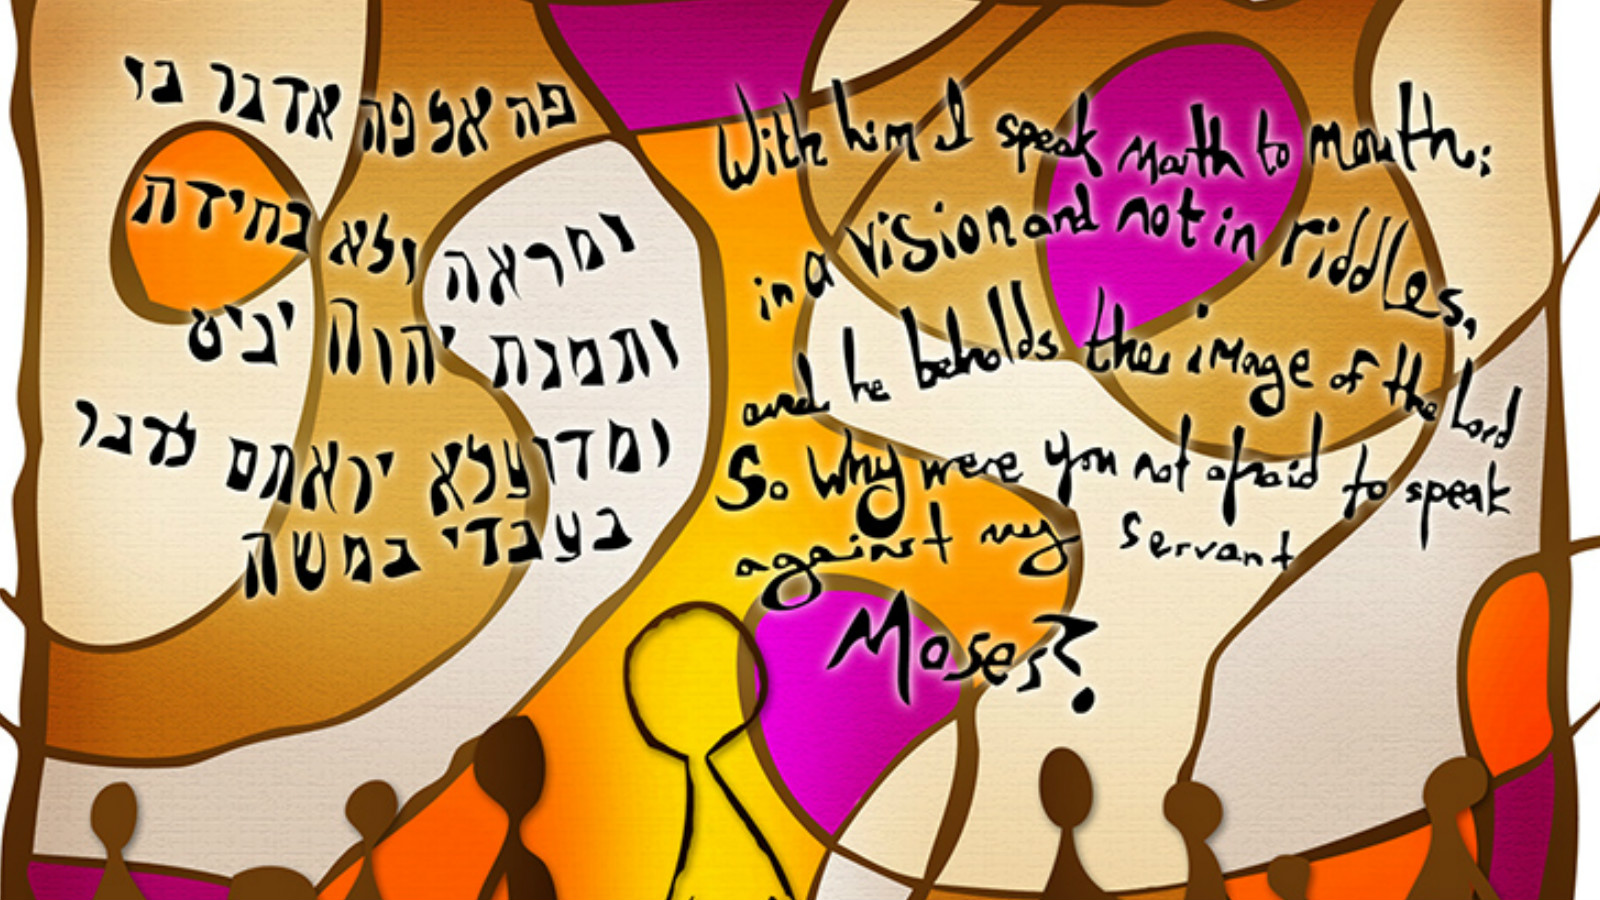 פה אל פה אדבר בו
ומראה ולא בחידת
ותמנת יהוה יביט
ומדוע לא יראתם לדבר
בעבדי במשה
With him I speak mouth to mouth;
in a vision and not in riddles,
and he beholds the image of the Lord
So why were you not afraid to speak
against my servant
Moses?